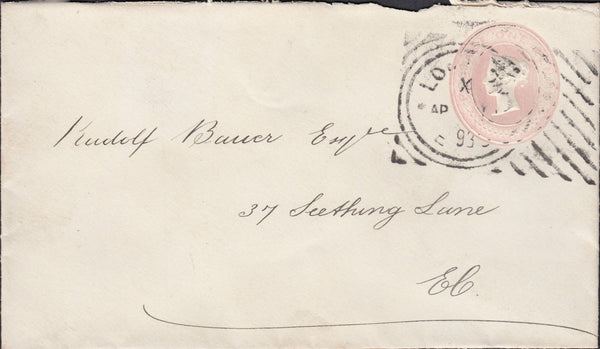 LO
X
AP
93
Rudolf Bauer Esqre
37 Seething Lane
EC.